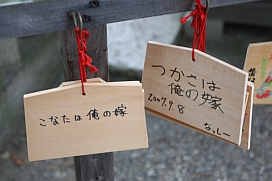 こなたは 俺の嫁
つかさは
俺の嫁
2007.9.8
なっしー